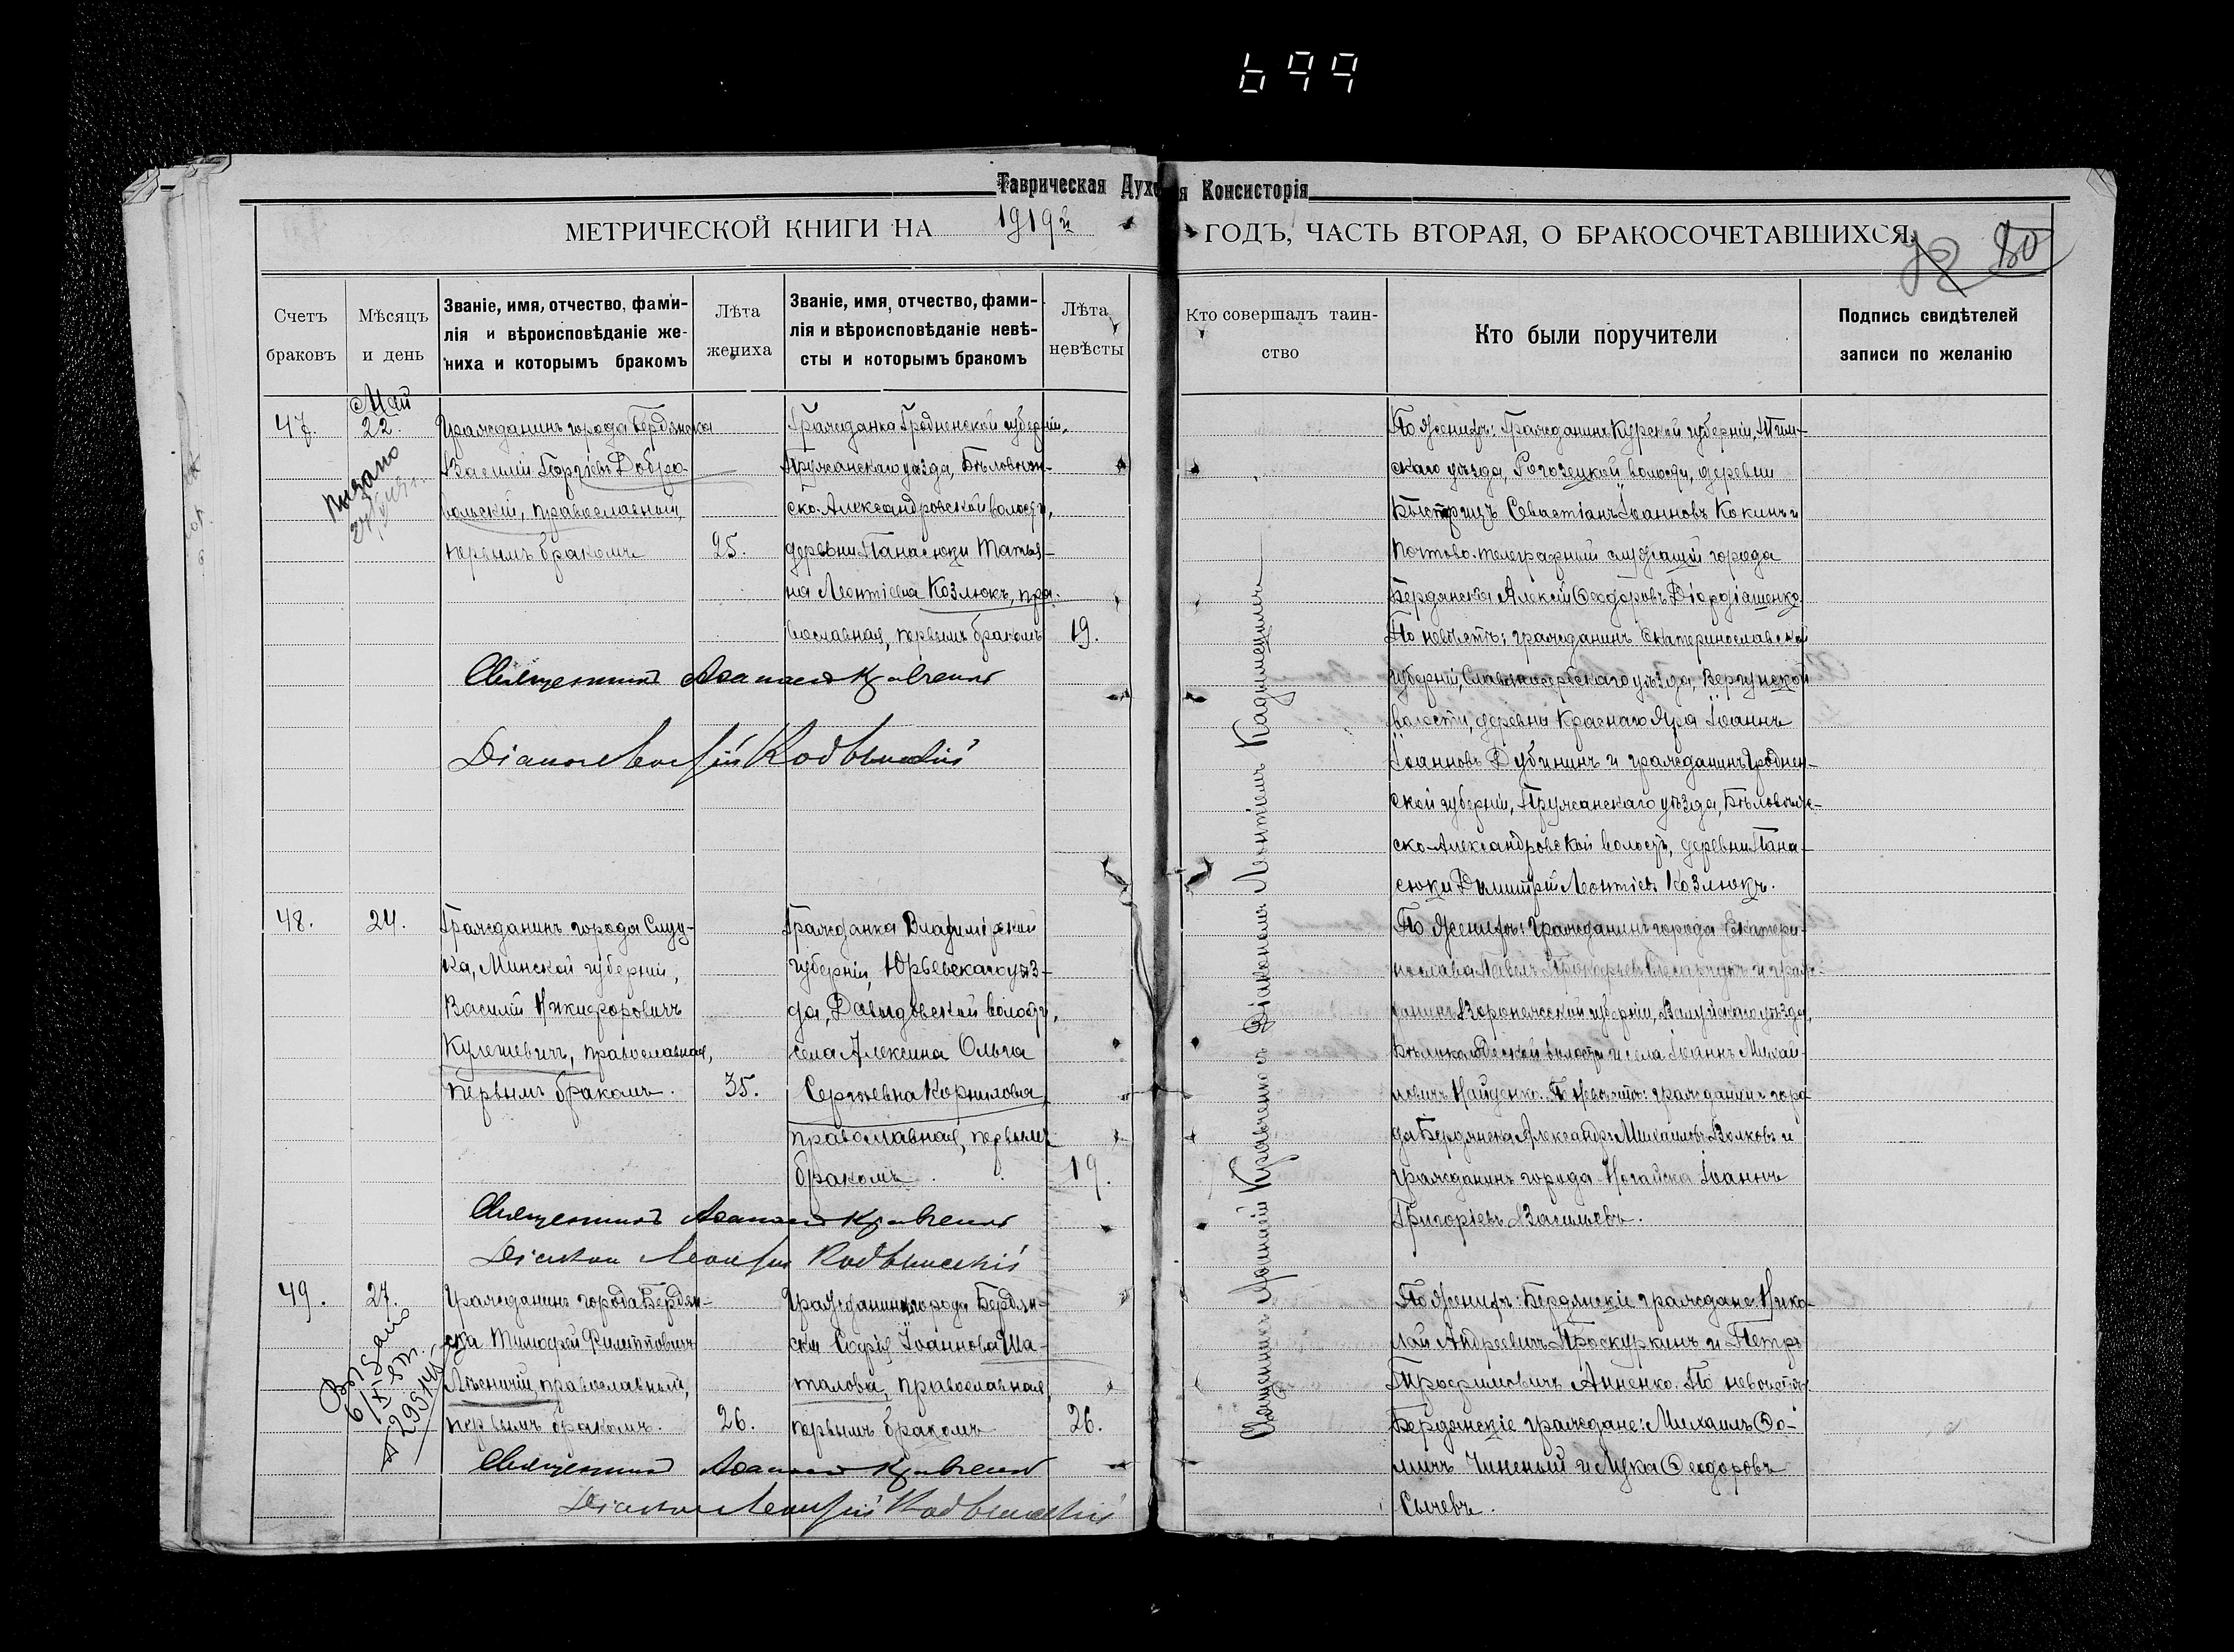 699
Таврическая Духо я Консисторія
МЕТРИЧЕСКОЙ КНИГИ НА 1919й ГОДЪ, ЧАСТЬ ВТОРАЯ, О БРАКОСОЧЕТАВШИХСЯ.
80
Счетъ
браковъ
Мѣсяцъ
и день
Званіе, имя, отчество, фами-
лія и вѣроисповѣданіе же-
ниха и которымъ бракомъ
Лѣта
жениха
Званіе, имя, отчество, фами-
лія и вѣроисповѣданіе невѣ-
сты и которымъ бракомъ
Лѣта
невѣсты
Кто совершалъ таин-
ство
Кто были поручители
Подпись свидѣтелей
записи по желанію
47.
Май
22.
Гражданинъ города Бердянска
Василій Георгіевъ Добро-
вольскій, православный,
первымъ бракомъ
25.
Гражданка Гродненской губерніи,
Пружанскаго уѣзда, Бѣловеж-
ско-Александровской волости,
деревни Панасюки Татья-
на Леонтіева Козлюкъ, пра-
вославная, первымъ бракомъ
19.
Священникъ Кравченко
По женихѣ: Гражданинъ Курской губерніи, Тим-
скаго уѣзда, Рогозецкой волости, деревни
Быстрецъ Севастіанъ Іоанновъ Кокинъ и
почтово-телеграфный служащій города
Бердянска Алексій Ѳеодоровъ
По невѣстѣ: гражданинъ Екатеринославской
губерніи, Славяносербскаго уѣзда, Вергунской
волости, деревни Краснаго Яра Іоаннъ
Іоанновъ Дубининъ и гражданинъ Гроднен-
ской губерніи, Пружанскаго уѣзда, Бѣловеж-
ско-Александровской волости, деревни Пана-
сюки Димитрій Леонтіевъ Козлюкъ.
48.
24.
Гражданинъ города Слуц-
ка, Минской губерніи,
Василій Никифоровичъ
Кулешевичъ, православный,
первымъ бракомъ.
35.
Гражданка Владимірской
губерніи, Юрьевскаго уѣз-
да, Давыдовской волости,
села Алексина Ольга
Сергѣевна Корнилова,
православная, первымъ
бракомъ.
19.
Священникъ Кравченко
По женихѣ: гражданинъ города Екатери-
нослава Павелъ и граж-
данинъ Воронежской губерніи, Валуйскаго уѣзда,
волости и села Іоаннъ Михай-
ловичъ Найденко. По невѣстѣ: гражданинъ горо-
да Бердянска Александръ Михаиловъ Волковъ и
гражданинъ города Ногайска Іоаннъ
Григоріевъ Васильевъ.
49.
27.
Гражданинъ города Бердян-
ска Тимофей Филипповичъ
православный,
первымъ бракомъ.
26.
города Бердян-
ска Софія Іоаннова Ша-
талова, православная,
первымъ бракомъ
26.
Священникъ Кравченко
По женихѣ: Бердянскіе граждане: Нико-
лай Андреевичъ Проскуркинъ и Петръ
Трофимовичъ Анненко. По невѣстѣ:
Бердянскіе граждане: Михаилъ Ѳо-
мичъ Чиненый и Лука Ѳеодоровъ
Сычевъ.
Священникъ Кравченко съ Діакономъ Леонтіемъ